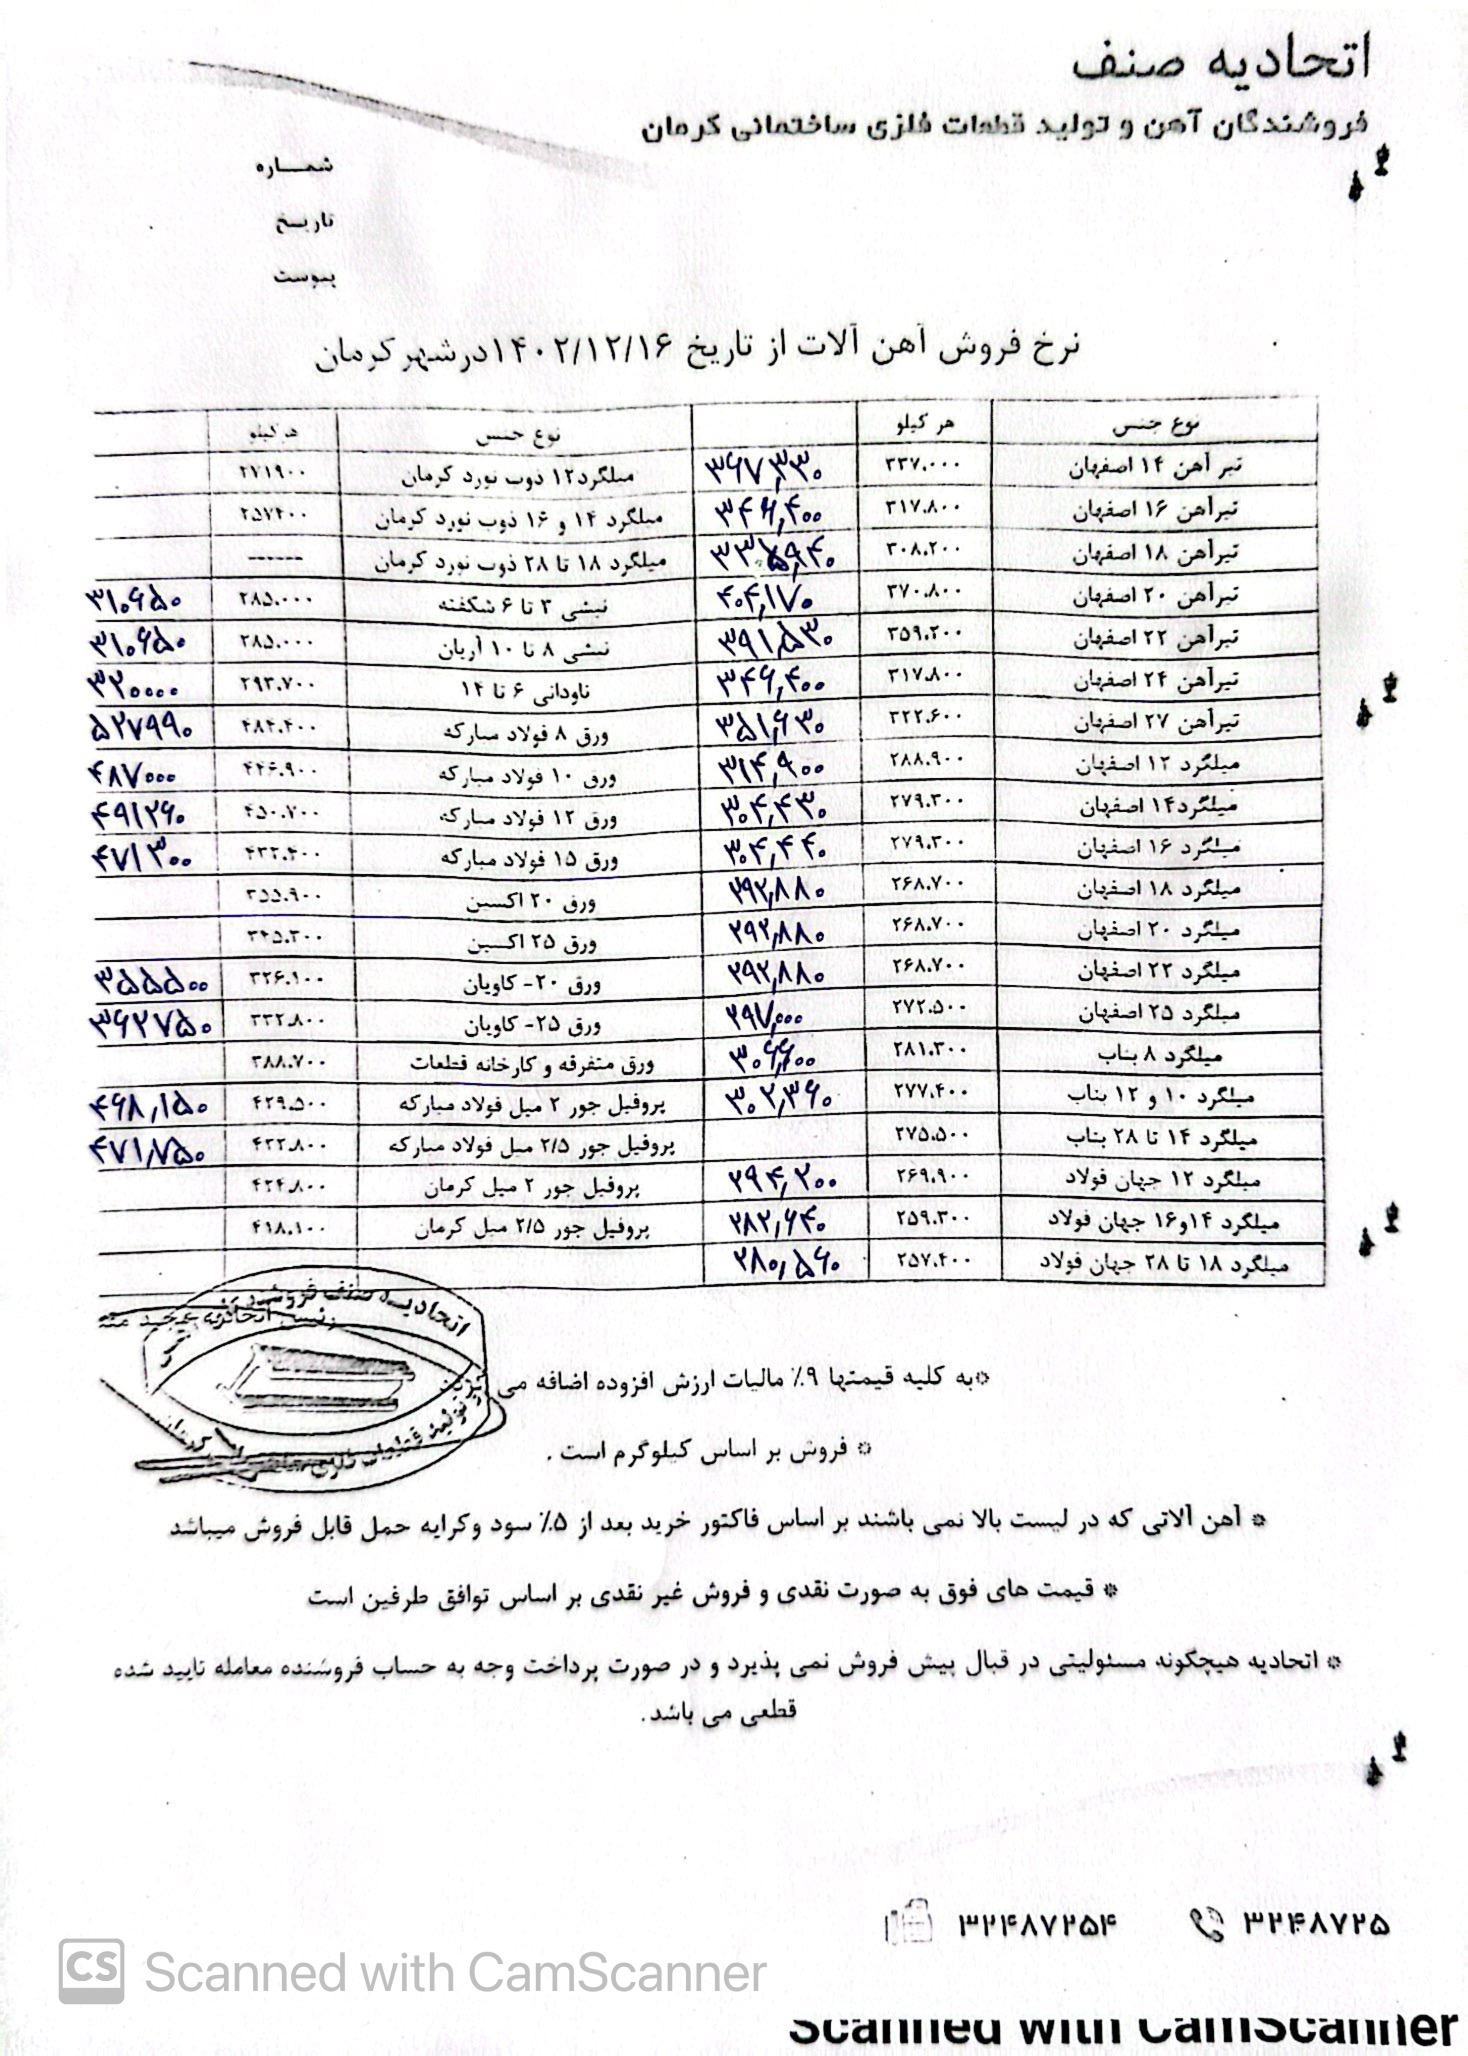 اتحادیه صنف
فروشندگان آهن و تولید قطعات فلزی ساختمانی کرمان
شماره
تاریخ
پیوست
نرخ فروش آهن آلات از تاریخ ۱۴۰۲/۱۲/۱۶ درشهرکرمان
نوع جنس هر کیلو نوع جنس هر کیلو
تیر آهن ۱۴ اصفهان ۳۳۷.۰۰۰ ۳۶۷,۳۳۰ میلگرد۱۲ ذوب نورد کرمان ۲۷۱۹۰۰
تیرآهن ۱۶ اصفهان ۳۱۷.۸۰۰ ۳۴۶,۴۰۰ میلگرد ۱۴ و ۱۶ ذوب نورد کرمان ۲۵۷۴۰۰
تیرآهن ۱۸ اصفهان ۳۰۸.۲۰۰ میلگرد ۱۸ تا ۲۸ ذوب نورد کرمان ------
تیرآهن ۲۰ اصفهان ۳۷۰.۸۰۰ ۴۰۴,۱۷۰ نبشی ۳ تا ۶ شکفته ۲۸۵.۰۰۰ ۳۱۰۶۵۰
تیرآهن ۲۲ اصفهان ۳۵۹.۲۰۰ ۳۹۱,۵۳۰ نبشی ۸ تا ۱۰ آریان ۲۸۵.۰۰۰ ۳۱۰۶۵۰
تیرآهن ۲۴ اصفهان ۳۱۷.۸۰۰ ۳۴۶,۴۰۰ ناودانی ۶ تا ۱۴ ۲۹۳.۷۰۰ ۳۲۰۰۰۰
تیرآهن ۲۷ اصفهان ۳۲۲.۶۰۰ ۳۵۱,۶۳۰ ورق ۸ فولاد مبارکه ۴۸۴.۴۰۰ ۵۲۷۹۹۰
میلگرد ۱۲ اصفهان ۲۸۸.۹۰۰ ۳۱۴,۹۰۰ ورق ۱۰ فولاد مبارکه ۴۴۶.۹۰۰ ۴۸۷۰۰۰
میلگرد۱۴ اصفهان ۲۷۹.۳۰۰ ۳۰۴,۴۳۰ ورق ۱۲ فولاد مبارکه ۴۵۰.۷۰۰ ۴۹۱۲۶۰
میلگرد ۱۶ اصفهان ۲۷۹.۳۰۰ ۳۰۴,۴۴۰ ورق ۱۵ فولاد مبارکه ۴۳۲.۴۰۰ ۴۷۱۳۰۰
میلگرد ۱۸ اصفهان ۲۶۸.۷۰۰ ۲۹۲,۸۸۰ ورق ۲۰ اکسین ۳۵۵.۹۰۰
میلگرد ۲۰ اصفهان ۲۶۸.۷۰۰ ۲۹۲,۸۸۰ ورق ۲۵ اکسین ۳۴۵.۳۰۰
میلگرد ۲۲ اصفهان ۲۶۸.۷۰۰ ۲۹۲,۸۸۰ ورق ۲۰- کاویان ۳۲۶.۱۰۰ ۳۵۵۵۰۰
میلگرد ۲۵ اصفهان ۲۷۲.۵۰۰ ۲۹۷,۰۰۰ ورق ۲۵- کاویان ۳۳۲.۸۰۰ ۳۶۲۷۵۰
میلگرد ۸ بناب ۲۸۱.۳۰۰ ۳۰۶,۶۰۰ ورق متفرقه و کارخانه قطعات ۳۸۸.۷۰۰
میلگرد ۱۰ و ۱۲ بناب ۲۷۷.۴۰۰ ۳۰۲,۳۶۰ پروفیل جور ۲ میل فولاد مبارکه ۴۲۹.۵۰۰ ۴۶۸,۱۵۰
میلگرد ۱۴ تا ۲۸ بناب ۲۷۵.۵۰۰ پروفیل جور ۲/۵ میل فولاد مبارکه ۴۳۲.۸۰۰ ۴۷۱,۷۵۰
میلگرد ۱۲ جهان فولاد ۲۶۹.۹۰۰ ۲۹۴,۲۰۰ پروفیل جور ۲ میل کرمان ۴۲۴.۸۰۰
میلگرد ۱۴و۱۶ جهان فولاد ۲۵۹.۳۰۰ ۲۸۲,۶۴۰ پروفیل جور ۲/۵ میل کرمان ۴۱۸.۱۰۰
میلگرد ۱۸ تا ۲۸ جهان فولاد ۲۵۷.۴۰۰ ۲۸۰,۵۶۰
اتحادیه صنف
*به کلیه قیمتها ۹٪ مالیات ارزش افزوده اضافه می
* فروش بر اساس کیلوگرم است .
* آهن آلاتی که در لیست بالا نمی باشند بر اساس فاکتور خرید بعد از ۵٪ سود وکرایه حمل قابل فروش میباشد
* قیمت های فوق به صورت نقدی و فروش غیر نقدی بر اساس توافق طرفین است
* اتحادیه هیچگونه مسئولیتی در قبال پیش فروش نمی پذیرد و در صورت پرداخت وجه به حساب فروشنده معامله تایید شده
قطعی می باشد.
۳۲۴۸۷۲۵ ۳۲۴۸۷۲۵۴
CS Scanned with CamScanner
Scanned with CamScanner